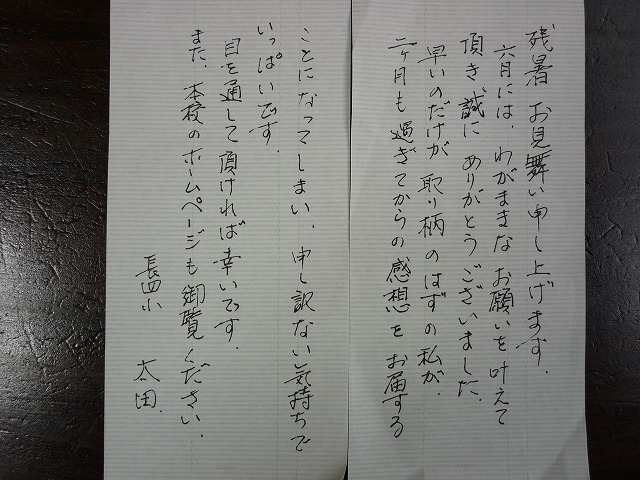 残暑 お見舞い申し上げます.
六月には、わがままなお願いを叶えて
頂き誠に ありがとうございました.
早いのだけが 取り柄のはずの私が、
二ヶ月も過ぎてからの感想をお届する
ことになってしまい、申し訳ない気持ちで
いっぱいです.
目を通して頂ければ幸いです.
また、本校のホームページも御覧ください.
長四小 太田.